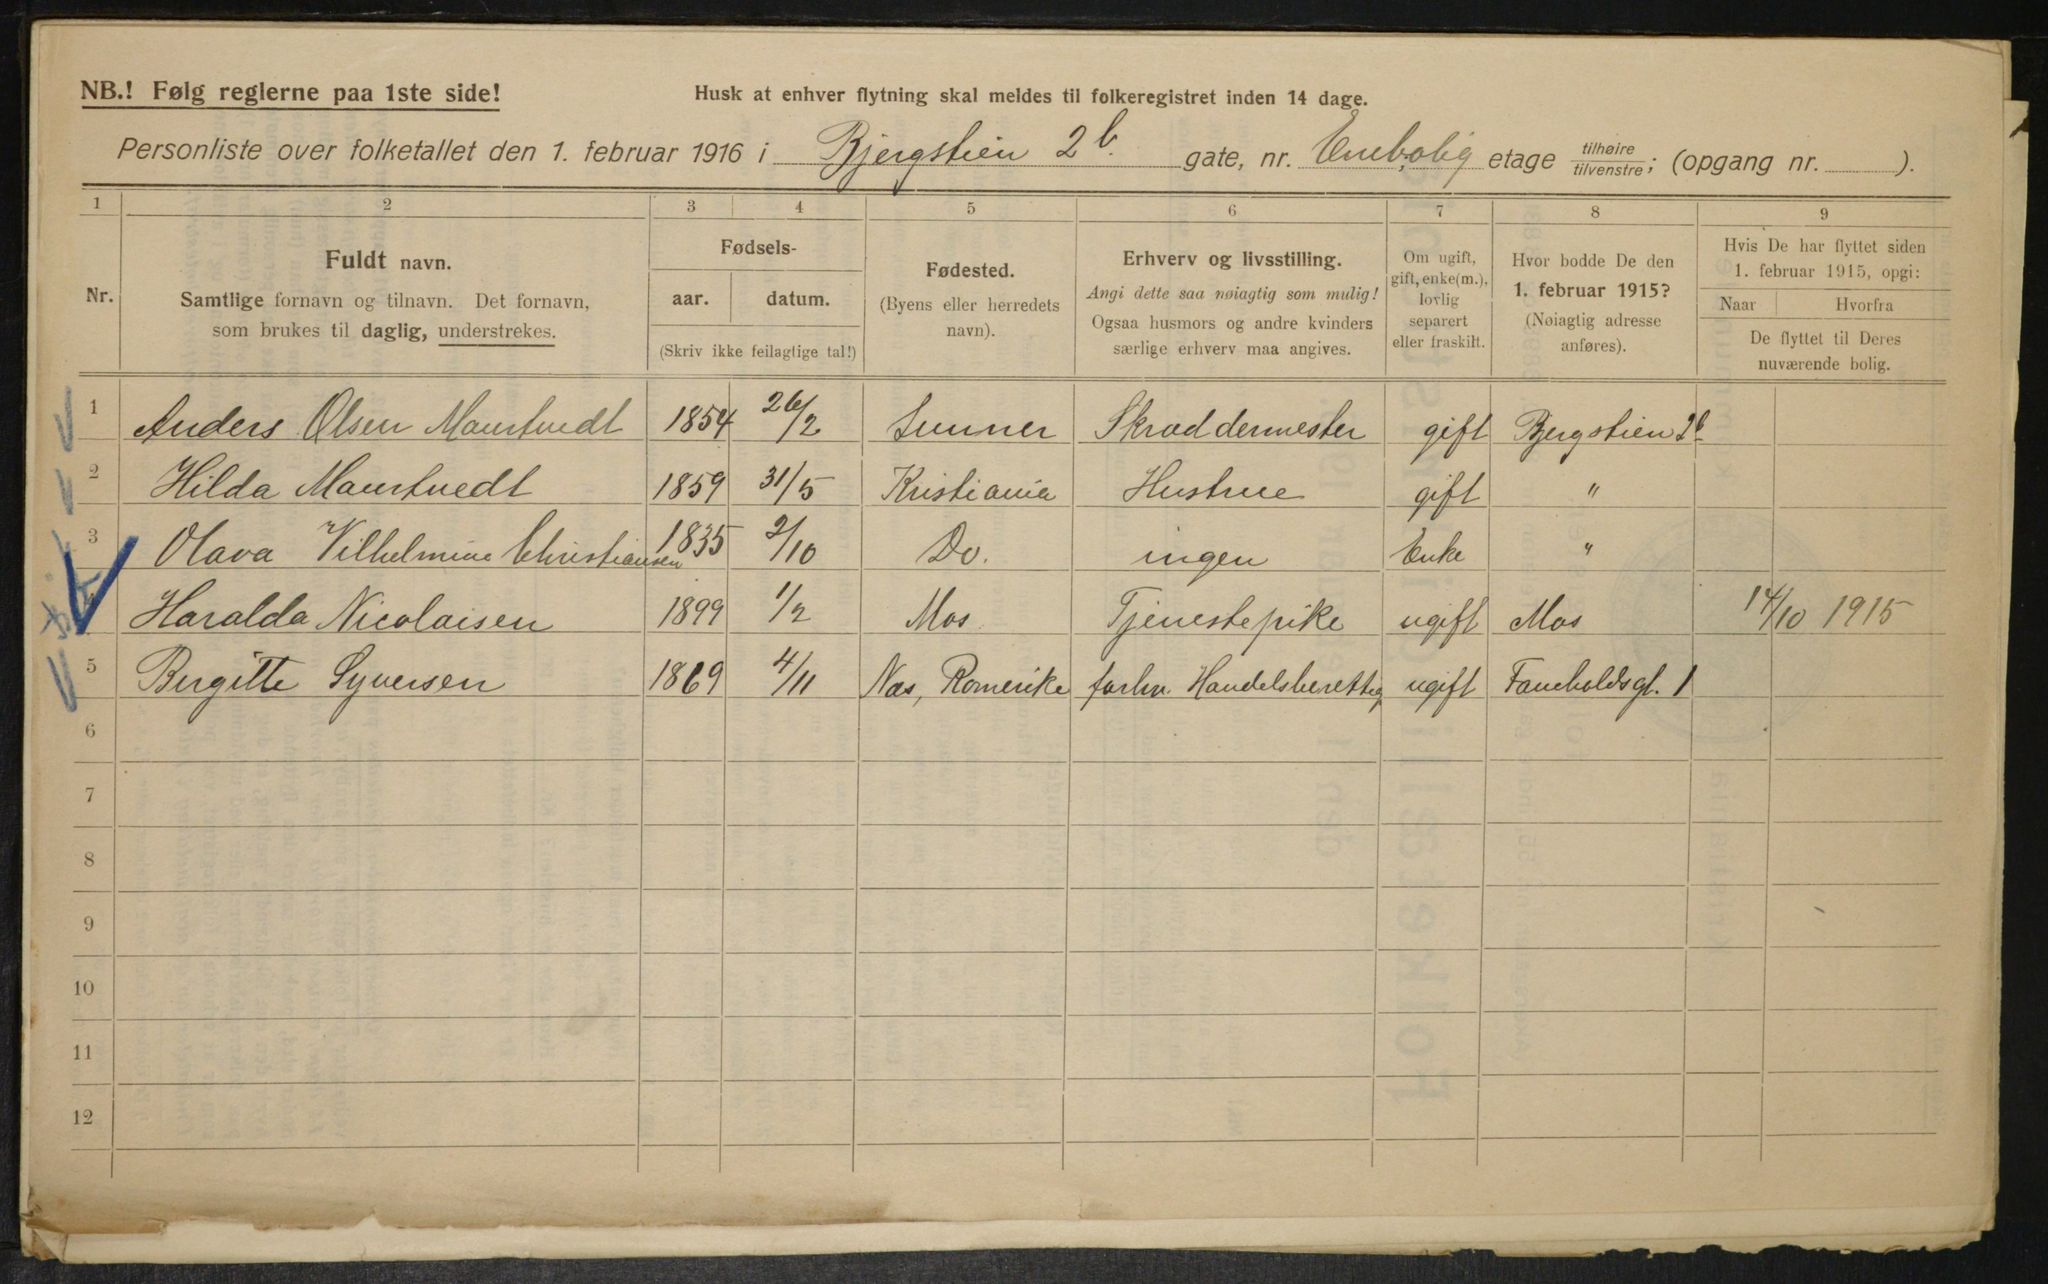 NB.! Følg reglerne paa 1ste side!
Husk at enhver flytning skal meldes til folkeregistret inden 14 dage.
Personliste over folketallet den 1. februar 1916 i Bjergstien 2b. gate, nr. Enebolig etage tilhøire/tilvenstre; (opgang nr. ).
1 2 3 4 5 6 7 8 9
Nr.
Fuldt navn.
Samtlige fornavn og tilnavn. Det fornavn,
som brukes til daglig, understrekes.
Fødsels-
aar. datum.
(Skriv ikke feilagtige tal!)
Fødested.
(Byens eller herredets
navn).
Erhverv og livsstilling.
Angi dette saa nøiagtig som mulig!
Ogsaa husmors og andre kvinders
særlige erhverv maa angives.
Om ugift,
gift, enke(m.),
lovlig
separert
eller fraskilt.
Hvor bodde De den
1. februar 1915?
(Nøiagtig adresse
anføres).
Hvis De har flyttet siden
1. februar 1915, opgi:
Naar Hvorfra
De flyttet til Deres
nuværende bolig.
1 Anders Olsen Maurtvedt 1854 26/2 Lunner Skræddermester gift Bjergstien 2b
2 Hilda Maurtvedt 1859 31/5 Kristiania Hustrue gift "
3 Olava Vilhelmine Christiansen 1835 2/10 Do. ingen Enke "
Haralda Nicolaisen 1899 1/2 Mos Tjenestepike ugift Mos 14/10 1915
5 Birgitte Syversen 1869 4/11 Nes, Romerike forhv. Handelsberettig ugift Faucholdsgt. 1
6
7
8
9
10
11
12